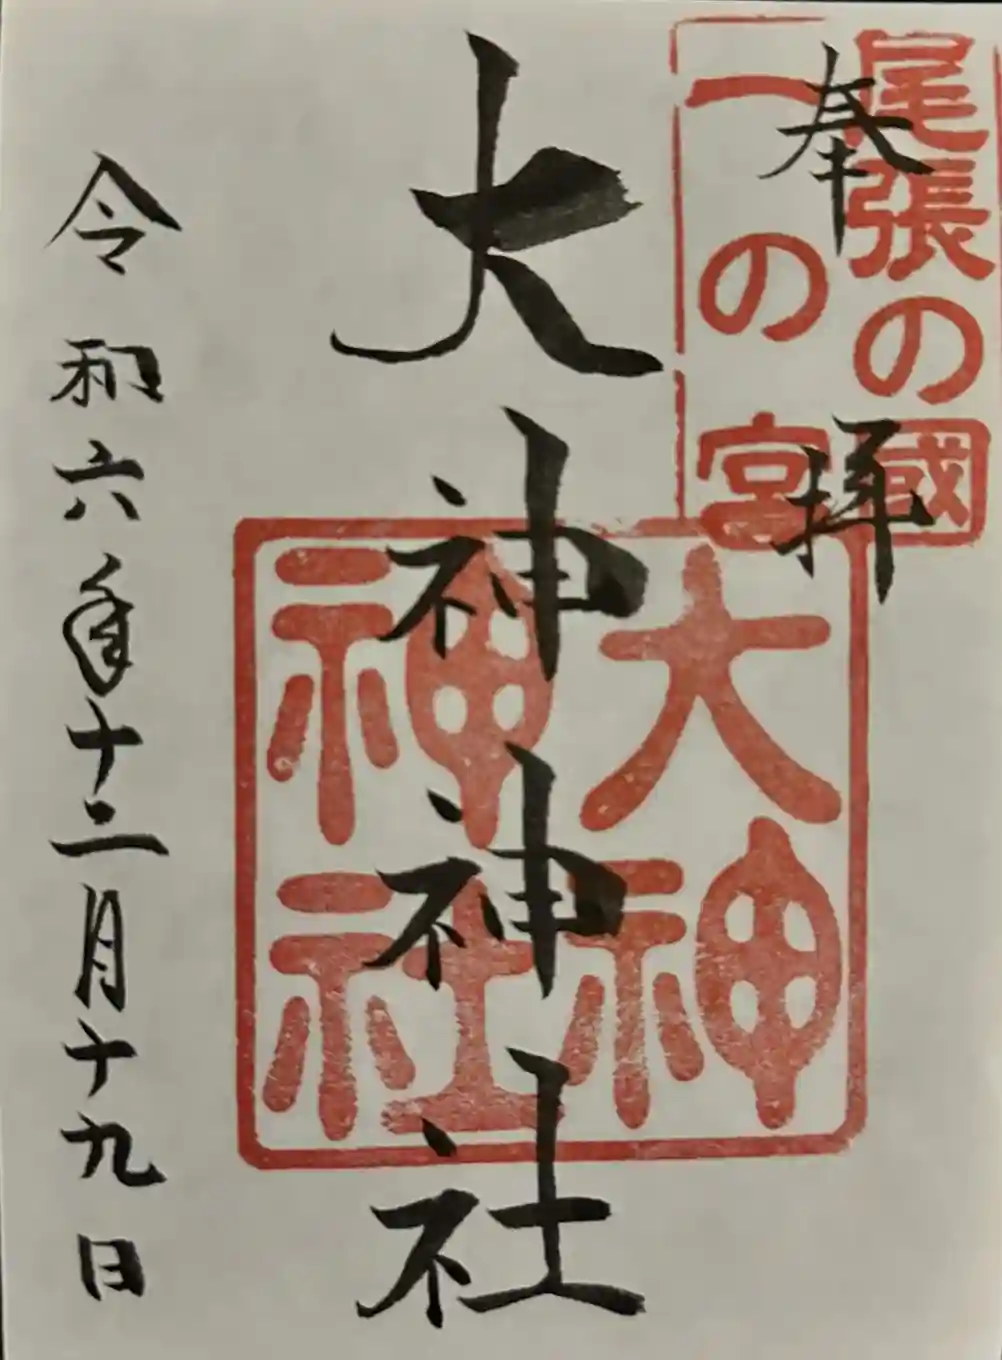 尾張の國
一の宮
奉拝
大神神社
大神
神社
令和六年十二月十九日